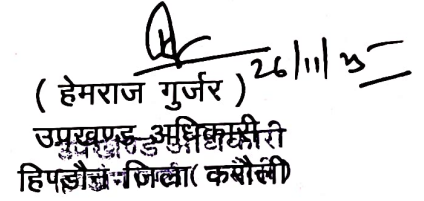 26/11/25
( हेमराज गुर्जर )
उपखण्ड अधिकारी
हिण्डौन जिला( करौली)